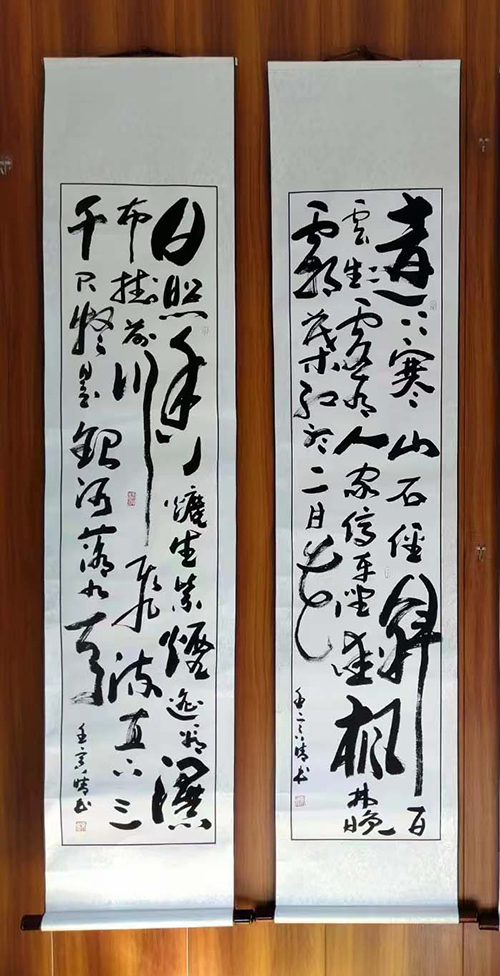 遠上寒山石径斜白
云生處有人家停车坐爱枫林晚
霜葉红於二月花
壬寅晴书
日照香炉生紫煙遥看瀑
布挂前川飞流直下三
千尺疑是銀河落九天
壬寅晴书